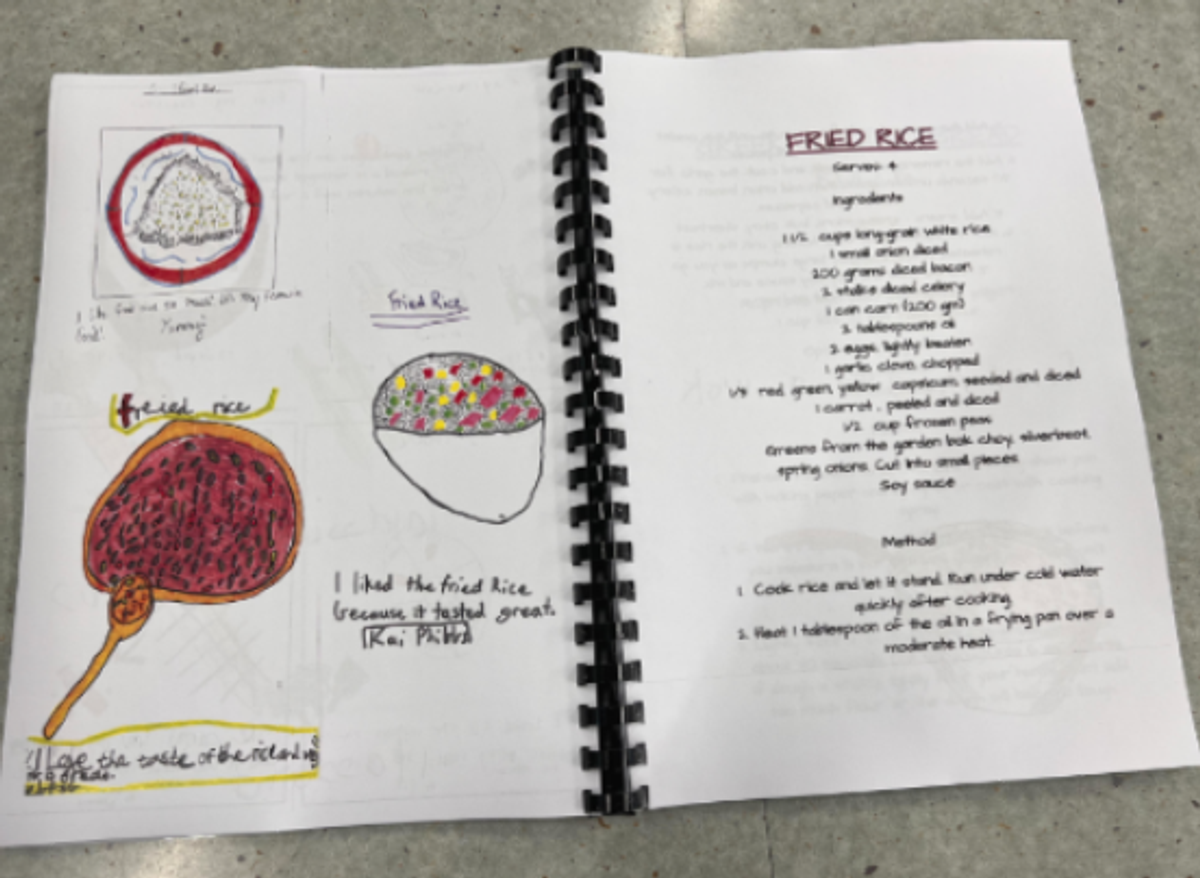 I like
food!
Yummy
Freied rice
I Love the taste of the rice and
Fried Rice
I liked the fried Rice
because it tasted great.
Kai Phibbs
FRIED RICE
Serves 4
Ingredients
1 1/2 cups long-grain white rice
1 small onion diced
200 grams diced bacon
2 stalks diced celery
1 can corn (200 gm)
2 tablespoons oil
2 eggs, lightly beaten
1 garlic clove, chopped
1/4 red, green, yellow capsicum, seeded and diced
1 carrot, peeled and diced
1/2 cup frozen peas
Greens from the garden bok choy, silverbeet,
spring onions. Cut into small pieces
Soy sauce
Method
1. Cook rice and let it stand. Run under cold water
quickly after cooking.
2. Heat 1 tablespoon of the oil in a frying pan over a
moderate heat.